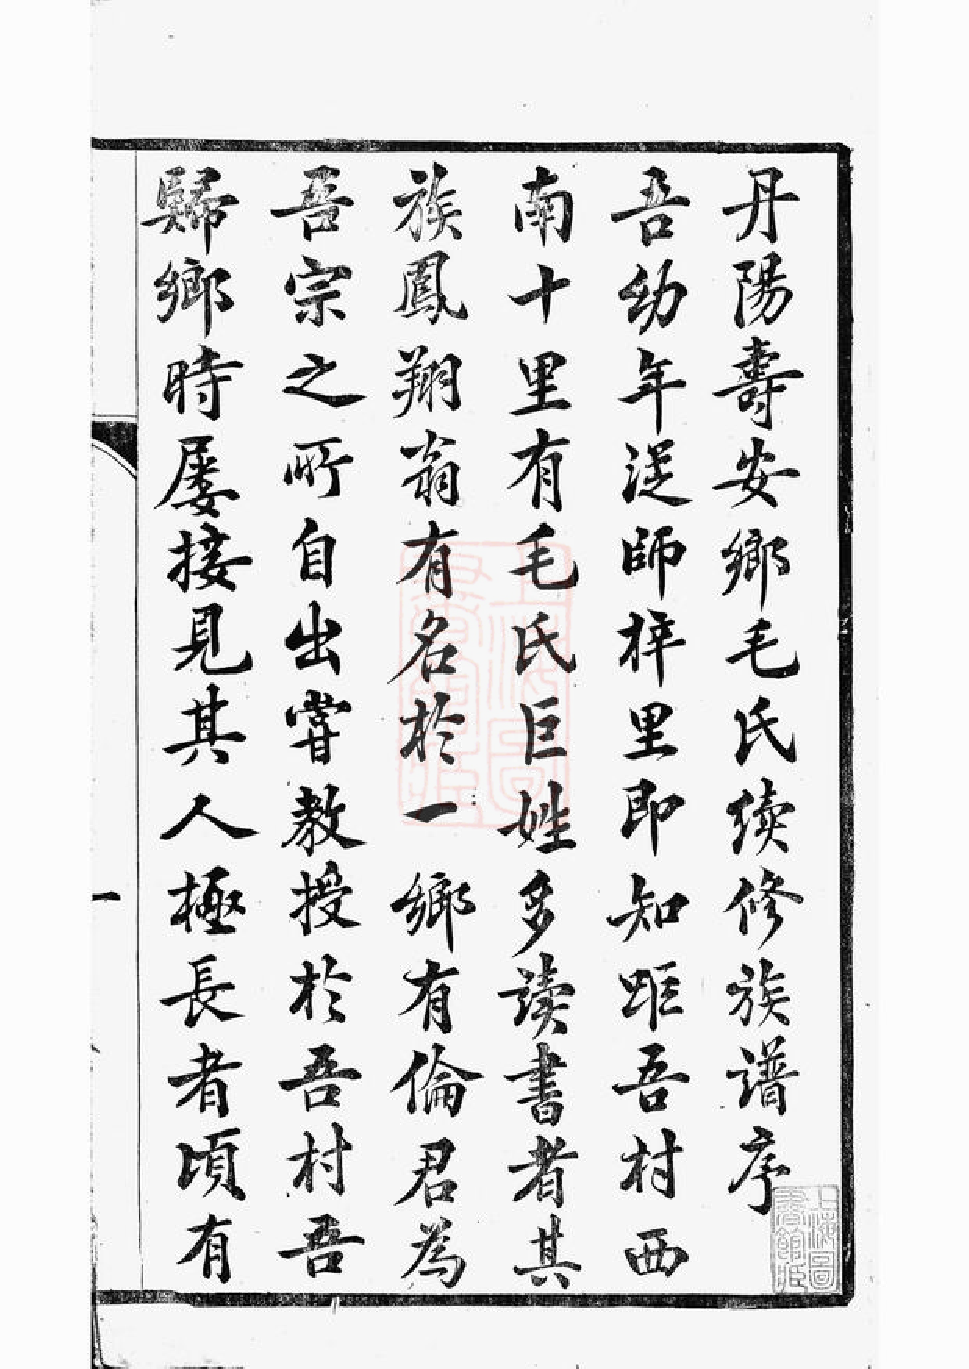 丹陽壽安鄉毛氏續修族譜序
吾幼年從師梓里即知距吾村西
南十里有毛氏巨姓多讀書者其
族鳳翔翁有名於一鄉有倫君為
吾宗之所自出嘗教授於吾村吾
歸鄉時屢接見其人極長者頃有
一
上海圖書館藏
上海圖書館藏